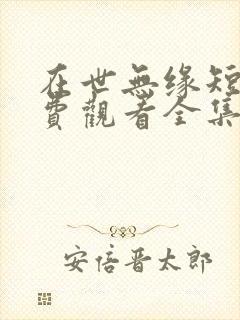 在世無缘短
費觀看全集
安倍晋太郎